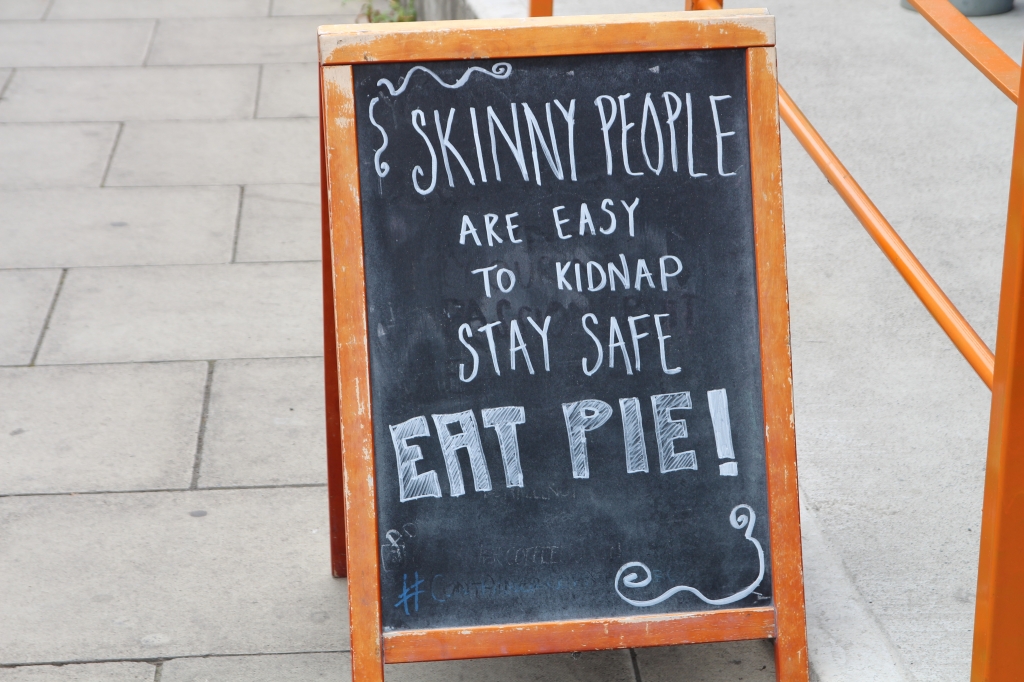 SKINNY PEOPLE
ARE EASY
TO KIDNAP
STAY SAFE
EAT PIE!
COFFEE
#